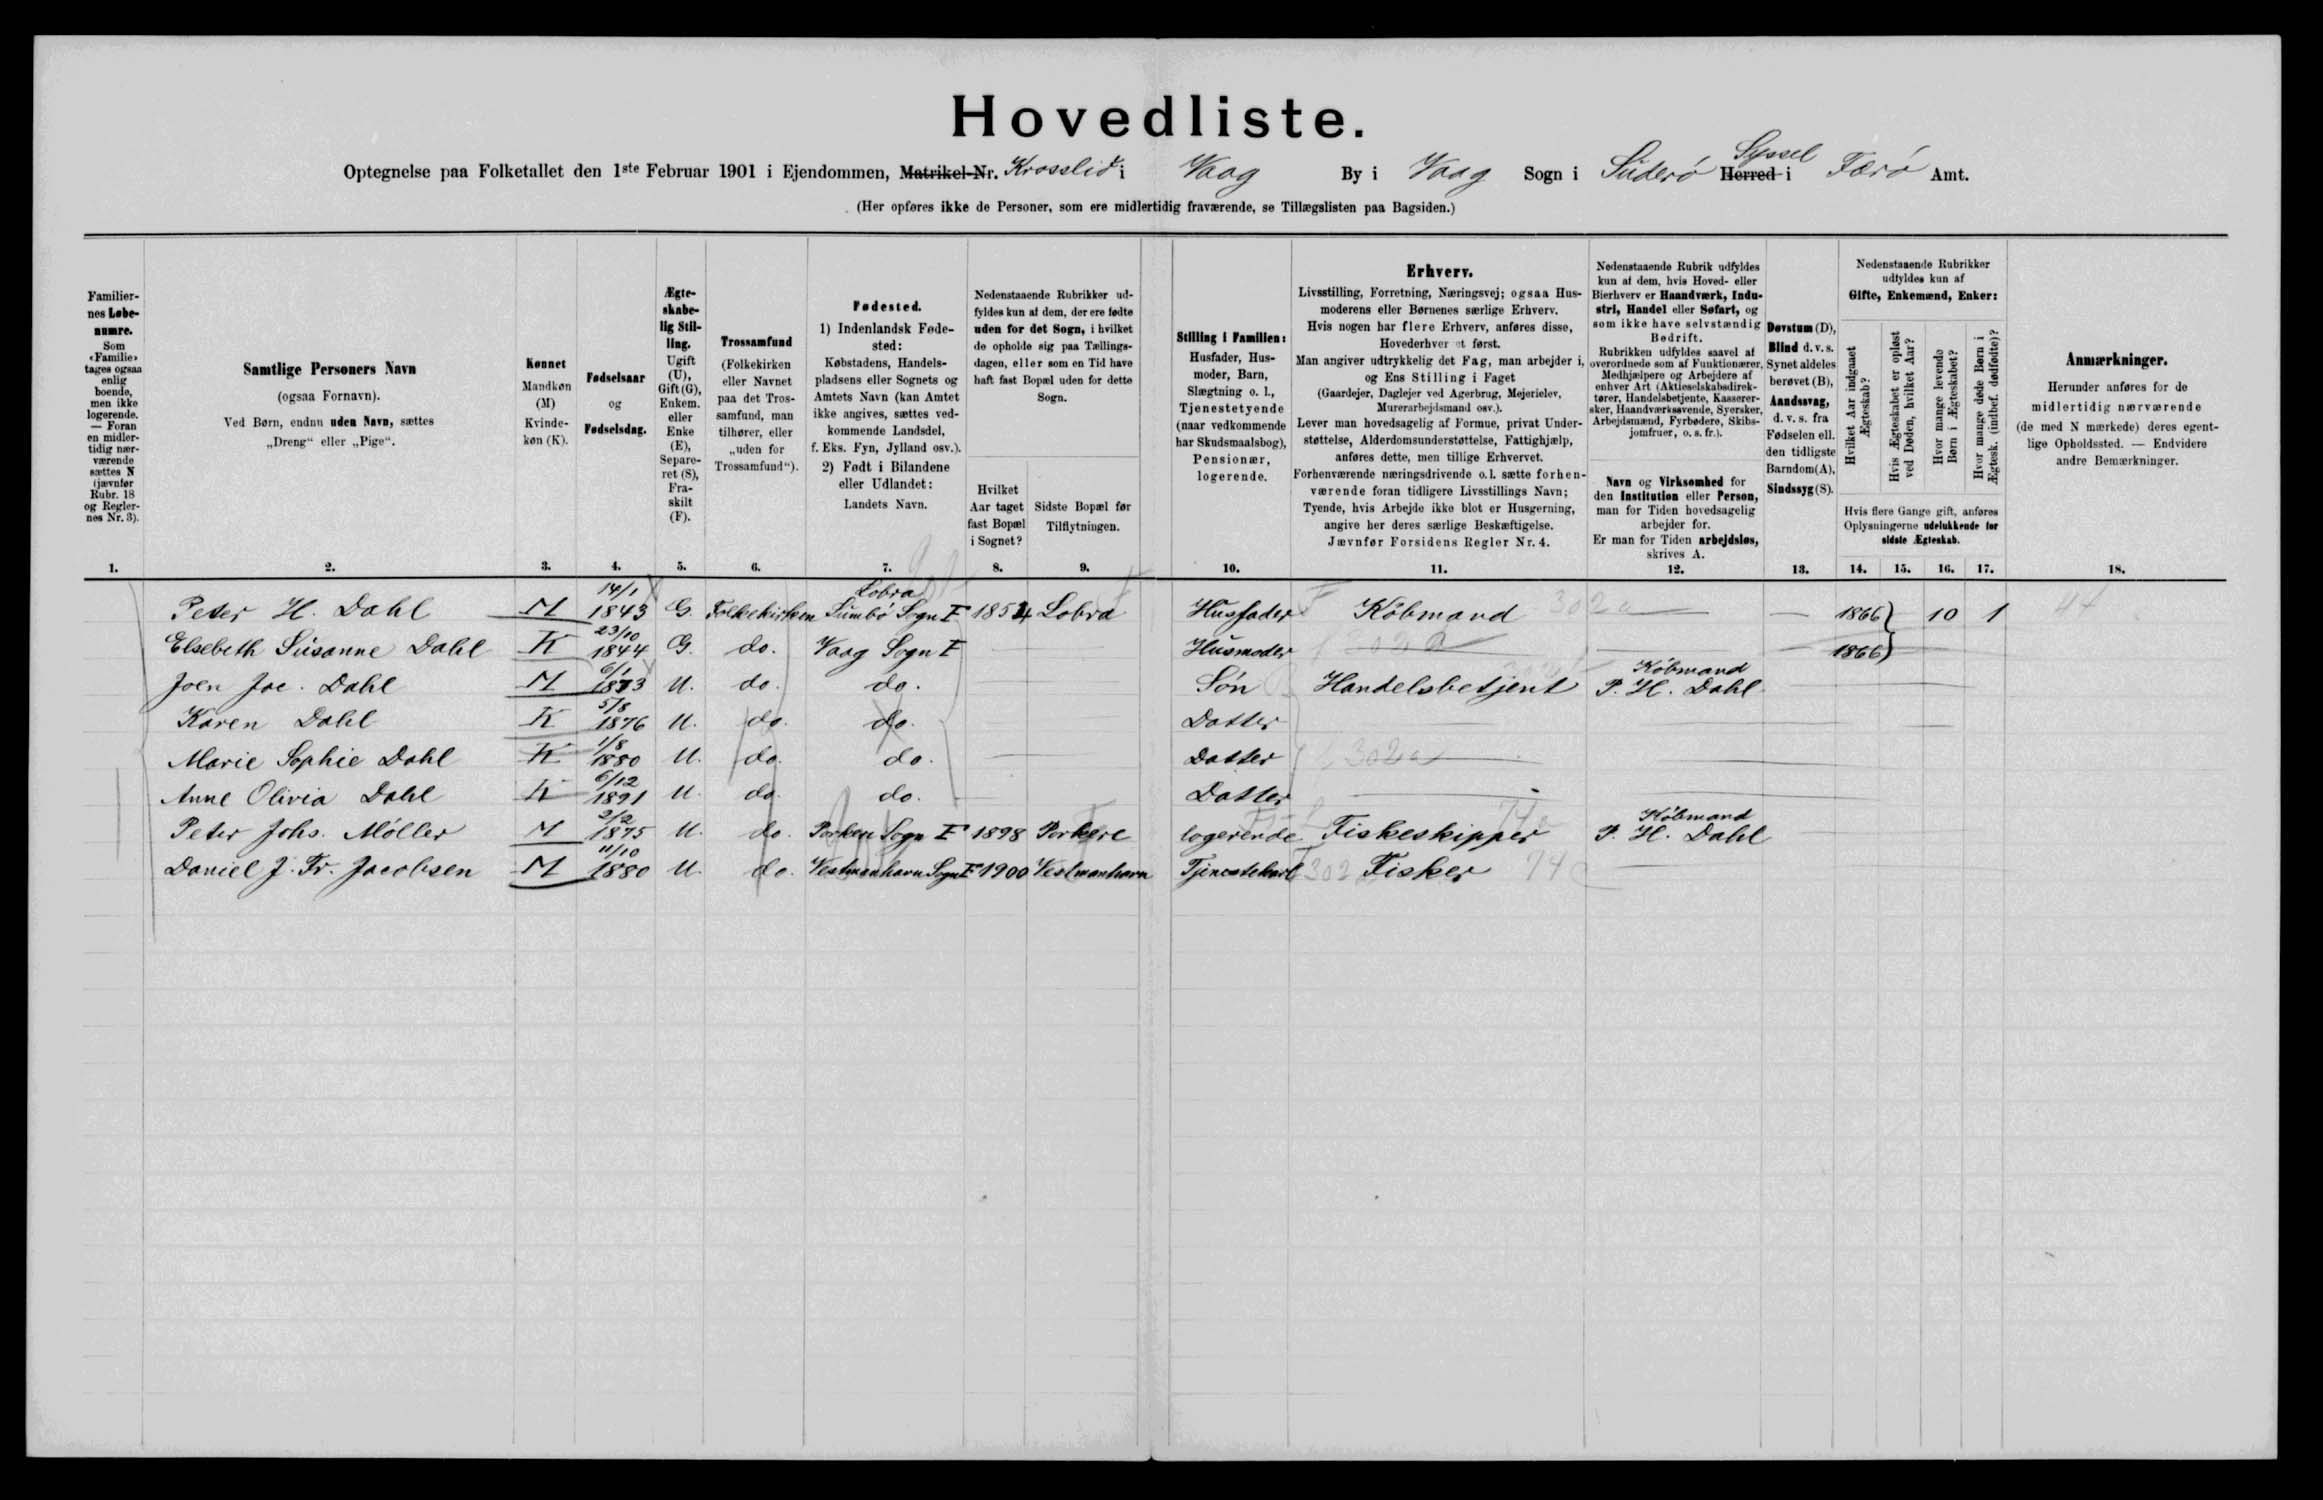 Hovedliste.
Optegnelse paa Folketallet den 1ste Februar 1901 i Ejendommen, Matrikel-Nr. Krosslid i Vaag By i Vaag Sogn i Süderö Herred Syssel i Færö Amt.
(Her opføres ikke de Personer, som ere midlertidig fraværende, se Tillægslisten paa Bagsiden.)
Familiernes Løbenumre. Som «Familie» tages ogsaa enlig boende, men ikke logerende. — Foran en midlertidig nærværende sættes N (jævnfør Rubr. 18 og Reglernes Nr. 3).
Samtlige Personers Navn (ogsaa Fornavn). Ved Børn, endnu uden Navn, sættes „Dreng“ eller „Pige“.
Kønnet Mandkøn (M) Kvindekøn (K).
Fødselsaar og Fødselsdag.
Ægteskabelig Stilling. Ugift (U), Gift (G), Enkem. eller Enke (E), Separeret (S), Fraskilt (F).
Trossamfund (Folkekirken eller Navnet paa det Trossamfund, man tilhører, eller „uden for Trossamfund“).
Fødested. 1) Indenlandsk Fødested: Købstadens, Handelspladsens eller Sognets og Amtets Navn (kan Amtet ikke angives, sættes vedkommende Landsdel, f. Eks. Fyn, Jylland osv.). 2) Født i Bilandene eller Udlandet: Landets Navn.
Nedenstaaende Rubrikker udfyldes kun af dem, der ere fødte uden for det Sogn, i hvilket de opholde sig paa Tællingsdagen, eller som en Tid have haft fast Bopæl uden for dette Sogn.
Hvilket Aar taget fast Bopæl i Sognet?
Sidste Bopæl før Tilflytningen.
Stilling i Familien: Husfader, Husmoder, Barn, Slægtning o. l., Tjenestetyende (naar vedkommende har Skudsmaalsbog), Pensionær, logerende.
Erhverv.
Livsstilling, Forretning, Næringsvej; ogsaa Husmoderens eller Børnenes særlige Erhverv.
Hvis nogen har flere Erhverv, anføres disse, Hovederhvervet først.
Man angiver udtrykkelig det Fag, man arbejder i, og Ens Stilling i Faget
(Gaardejer, Daglejer ved Agerbrug, Mejerielev, Murerarbejdsmand osv.).
Lever man hovedsagelig af Formue, privat Understøttelse, Alderdomsunderstøttelse, Fattighjælp, anføres dette, men tillige Erhvervet.
Forhenværende næringsdrivende o. l. sætte forhenværende foran tidligere Livsstillings Navn;
Tyende, hvis Arbejde ikke blot er Husgerning, angive her deres særlige Beskæftigelse.
Jævnfør Forsidens Regler Nr. 4.
Nedenstaaende Rubrik udfyldes kun af dem, hvis Hoved- eller Bierhverv er Haandværk, Industri, Handel eller Søfart, og som ikke have selvstændig Bedrift.
Rubrikken udfyldes saavel af overordnede som af Funktionærer, Medhjælpere og Arbejdere af enhver Art (Aktieselskabsdirektører, Handelsbetjente, Kasserersker, Haandværksvende, Syersker, Arbejdsmænd, Fyrbødere, Skibsjomfruer, o. s. fr.).
Navn og Virksomhed for den Institution eller Person, man for Tiden hovedsagelig arbejder for.
Er man for Tiden arbejdsløs, skrives A.
Døvstum (D), Blind d. v. s. Synet aldeles berøvet (B), Aandssvag, d. v. s. fra Fødselen ell. den tidligste Barndom (A), Sindssyg (S).
Nedenstaaende Rubrikker udfyldes kun af Gifte, Enkemænd, Enker:
Hvilket Aar indgaaet Ægteskab?
Hvis Ægteskabet er opløst ved Døden, hvilket Aar?
Hvor mange levende Børn i Ægteskabet?
Hvor mange døde Børn i Ægtesk. (indbef. dødfødte)?
Hvis flere Gange gift, anføres Oplysningerne udelukkende for sidste Ægteskab.
Anmærkninger. Herunder anføres for de midlertidig nærværende (de med N mærkede) deres egentlige Opholdssted. — Endvidere andre Bemærkninger.
1. 2. 3. 4. 5. 6. 7. 8. 9. 10. 11. 12. 13. 14. 15. 16. 17. 18.
Peter H. Dahl M 14/1 1843 G. Folkekirken Lobra Sümbö Sogn F 1854 Lobra Husfader Köbmand 302a 1866 10 1
Elsebeth Süsanne Dahl K 23/10 1844 G. do. Vaag Sogn F Husmoder 302a 1866
Joen Joc. Dahl M 6/1 1873 U. do. do. Sön Handelsbetjent Köbmand P. H. Dahl
Karen Dahl K 5/8 1876 U. do. do. Datter
Marie Sophie Dahl K 1/8 1880 U. do. do. Datter 302a
Anne Olivia Dahl K 6/12 1891 U. do. do. Datter
Peter Johs. Möller M 2/2 1875 U. do. Porken Sogn F 1898 Porkere logerende Fiskeskipper Köbmand P. H. Dahl
Daniel J. Fr. Jacobsen M 11/10 1880 U. do. Vestmanhavn Sogn F 1900 Vestmanhavn Tjenestekarl 302 Fisker 74